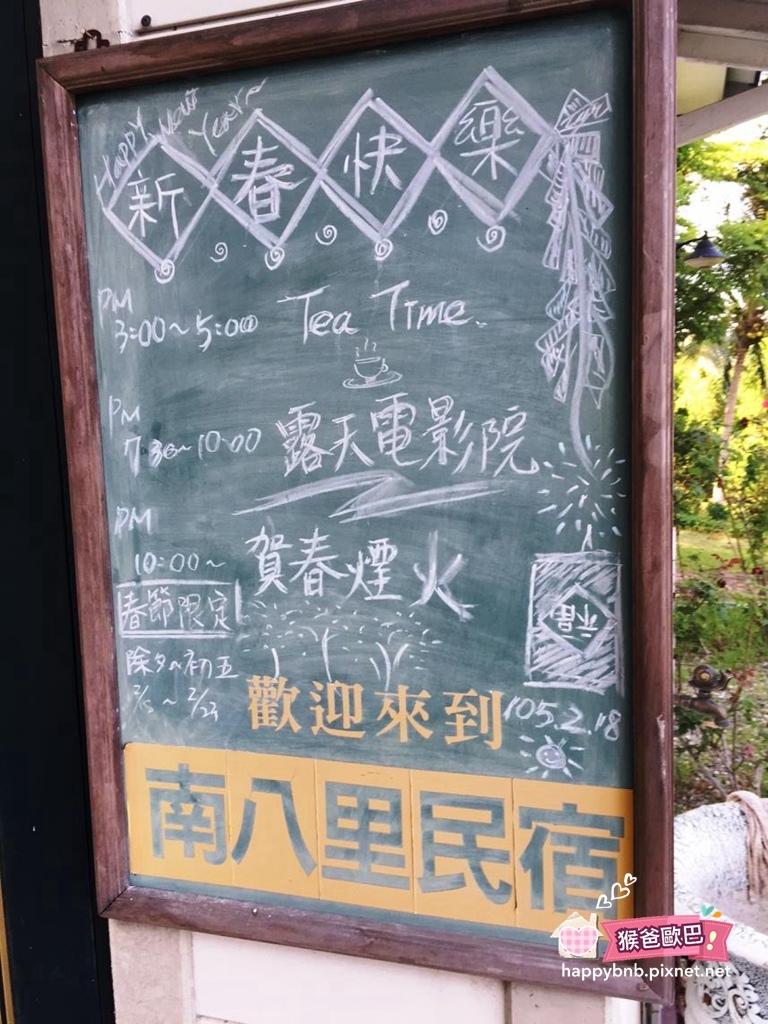 Happy New Year
新春快樂
PM
3:00~5:00 Tea Time
PM
7:30~10:00 露天電影院
PM
10:00~ 賀春煙火
春節限定
除夕~初五
福
歡迎來到
105.2.18
南八里民宿
猴爸歐巴!
happybnb.pixnet.net